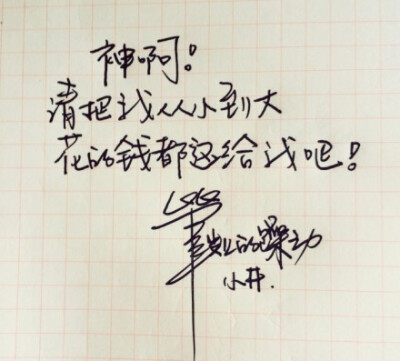 神啊!
请把我从小到大
花的钱都还给我吧!
的躁动
小井.